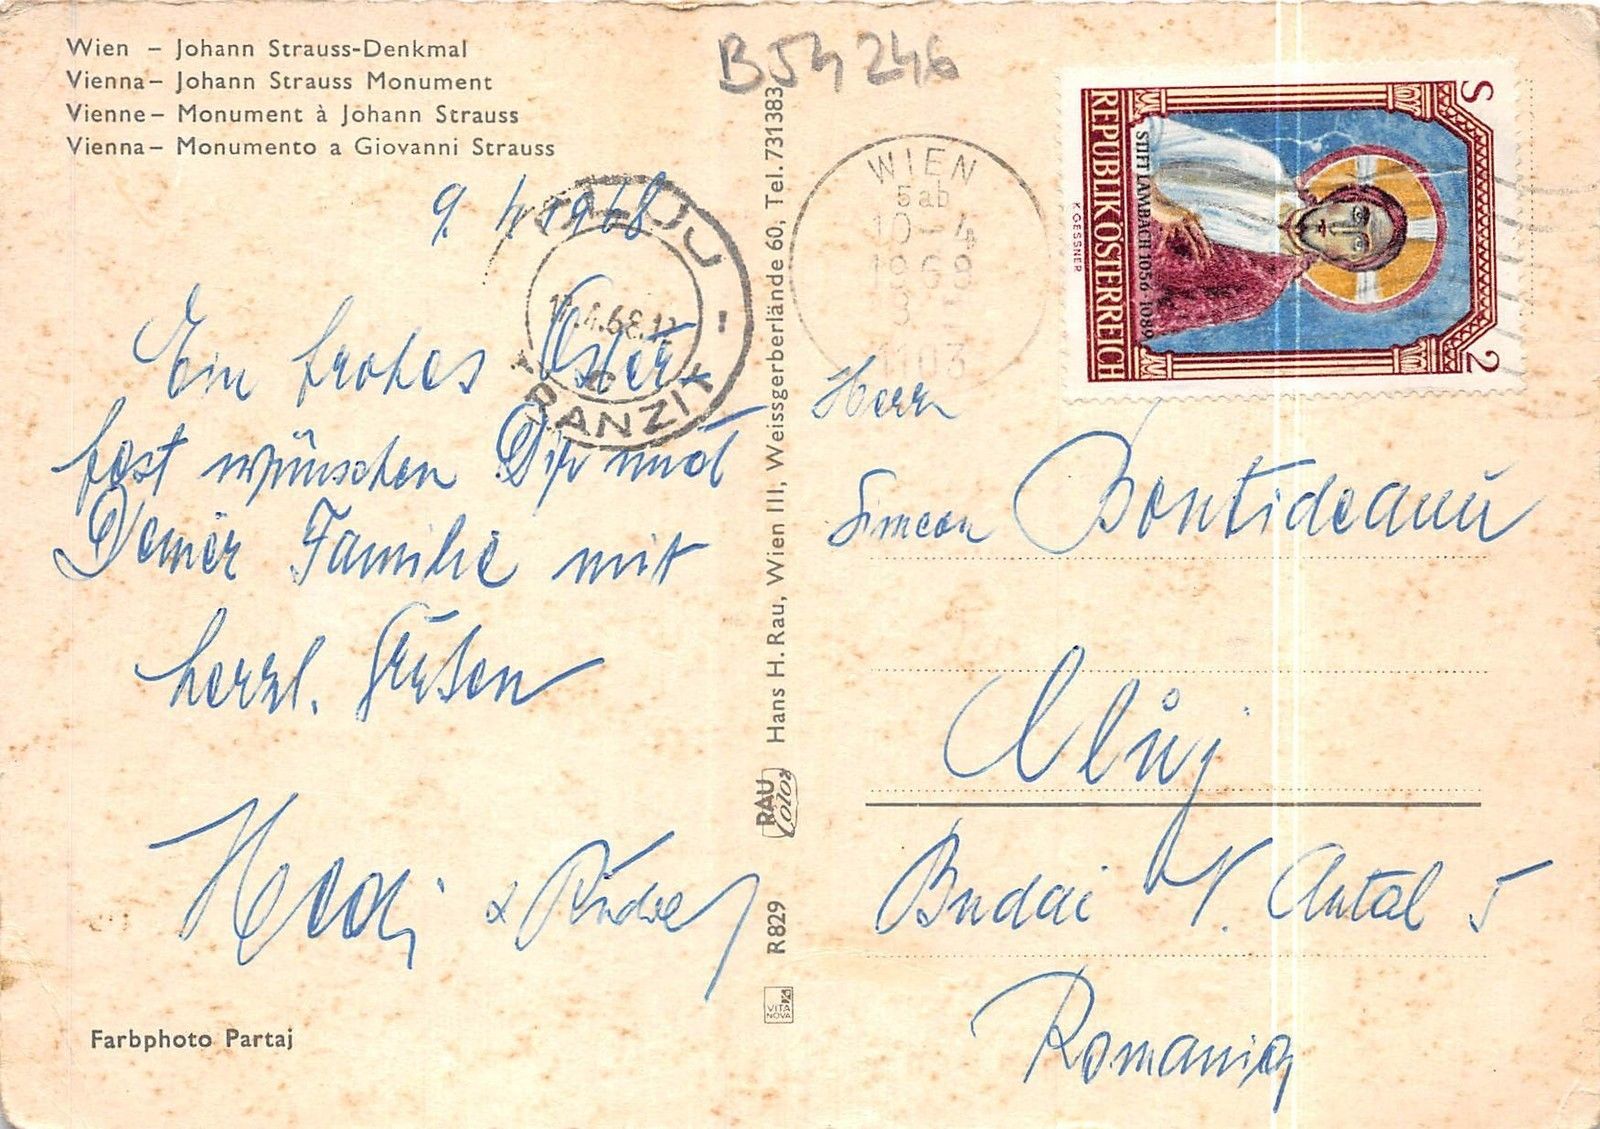 Wien – Johann Strauss-Denkmal
Vienna – Johann Strauss Monument
Vienne – Monument à Johann Strauss
Vienna – Monumento a Giovanni Strauss
B54 246
9. 4. 1968
Ein frohes Oster-
fest wünschen Dir und
Deiner Familie mit
herzl. Grüßen
Hedi &
Farbphoto Partaj
CLUJ
.4.68.12
TRANZIT
Hans H. Rau, Wien III, Weissgerberlände 60, Tel. 731383
RAU Color
R829
VITA
NOVA
WIEN
5ab
10-4
1968
1103
S 2
REPUBLIK ÖSTERREICH
STIFT LAMBACH 1056-1089
K. GESSNER
Herrn
Simeon Bontideanu
Cluj
Budai N. Antal 5
Romania